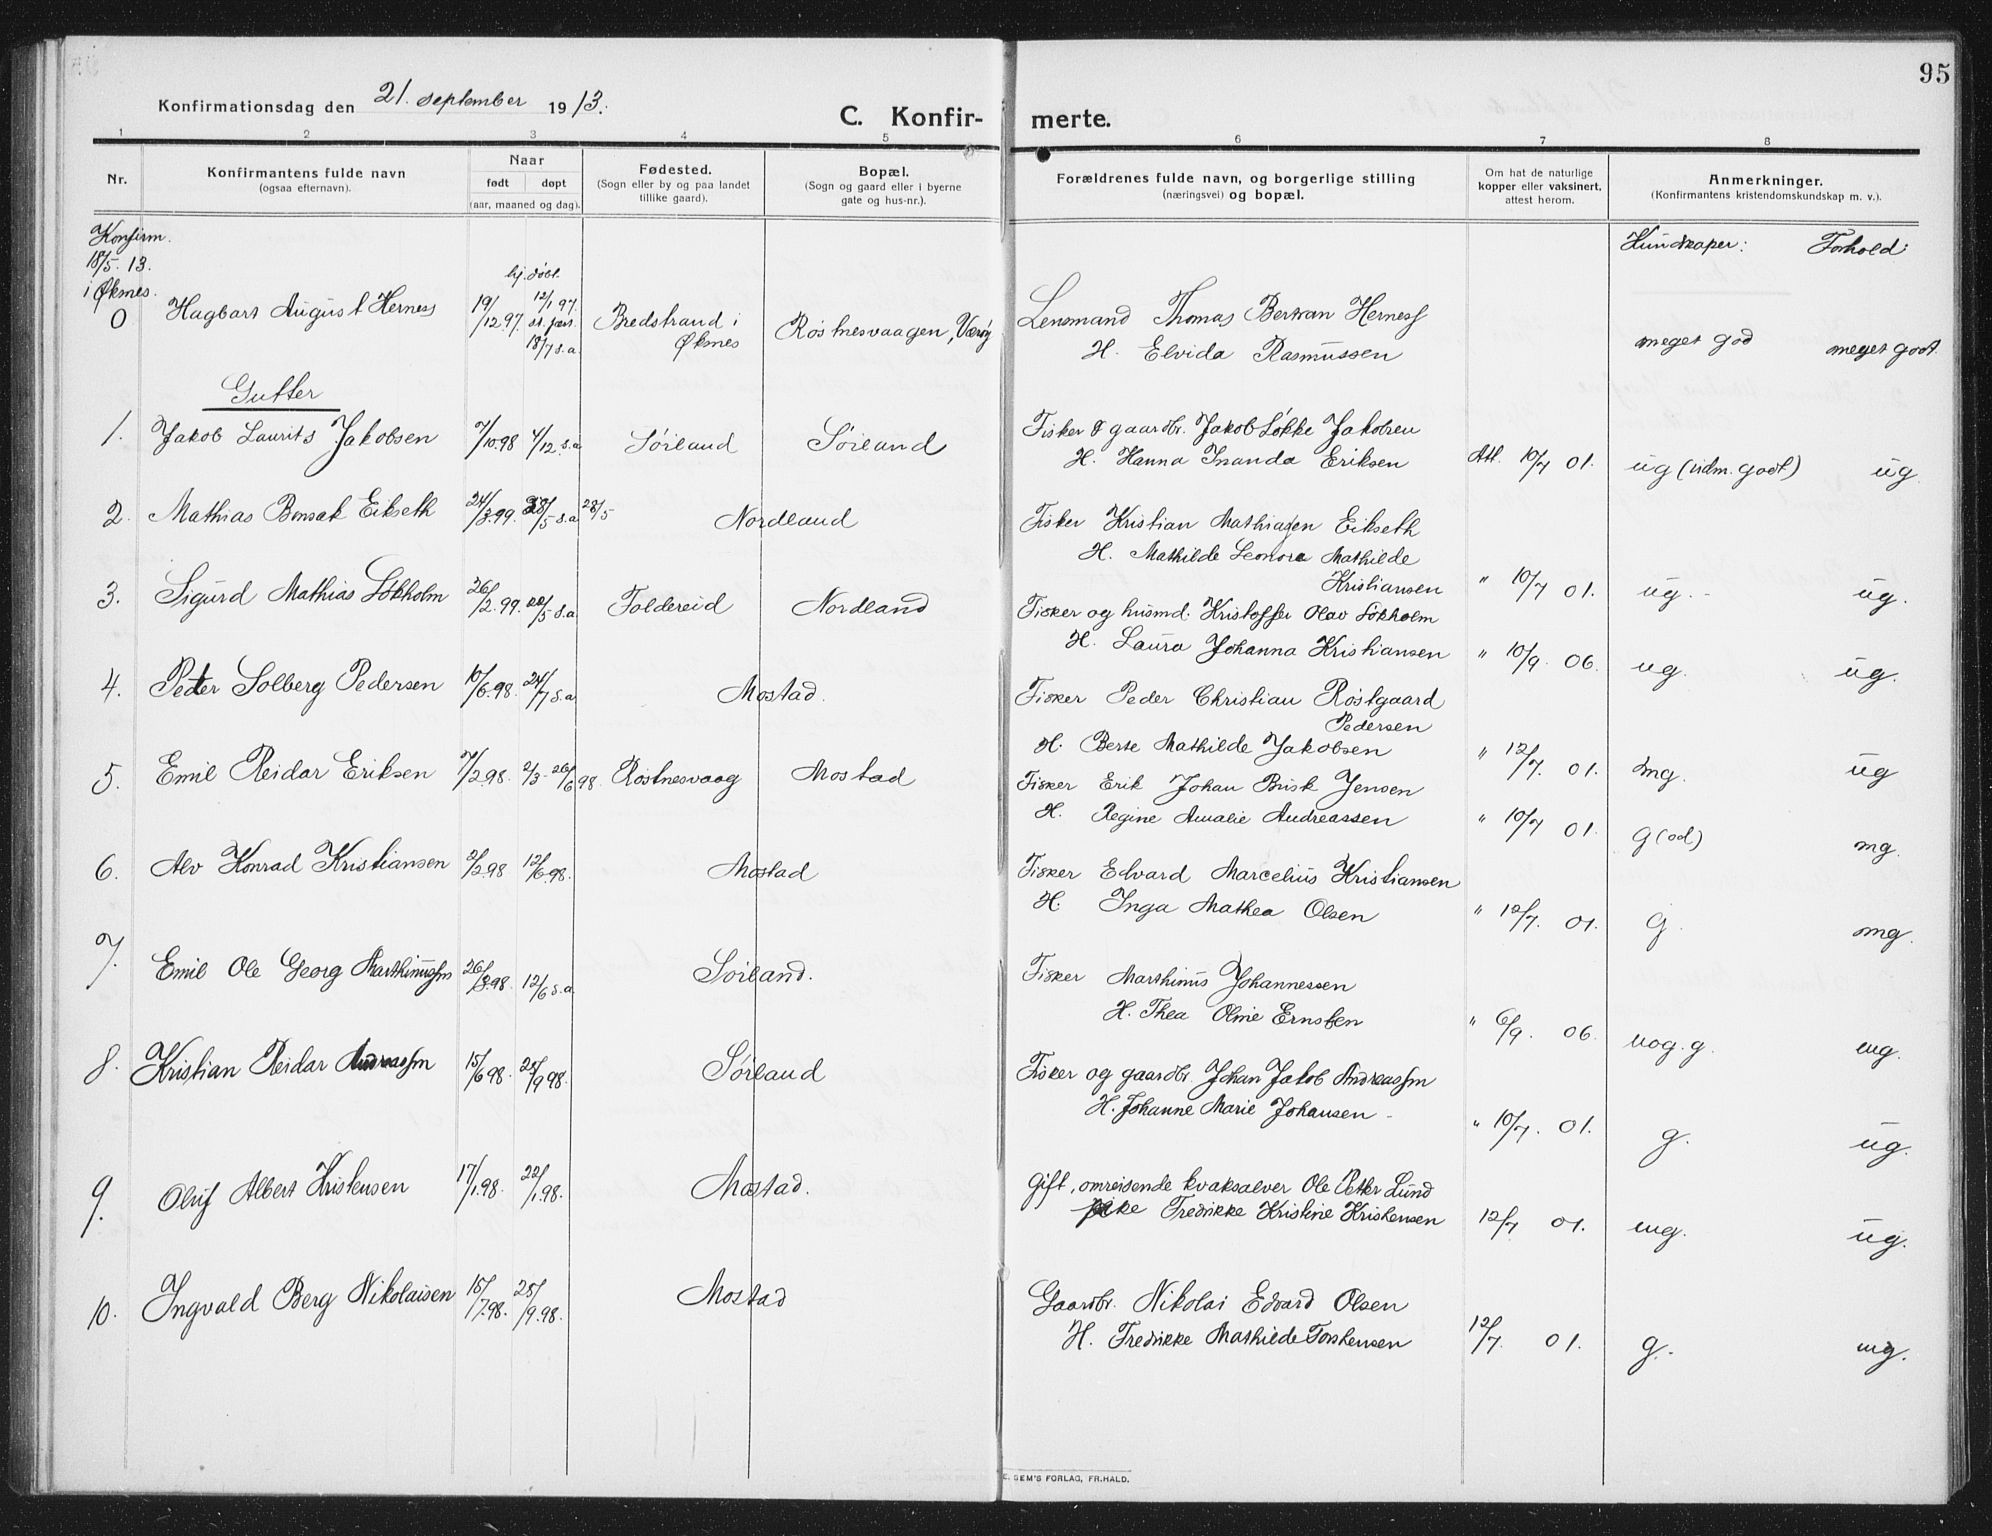 95
Konfirmationsdag den 21. september 1913.
C. Konfir- merte.
1 2 3 4 5 6 7 8
Nr.
Konfirmantens fulde navn
(ogsaa efternavn).
Naar
født døpt
(aar, maaned og dag).
Fødested.
(Sogn eller by og paa landet
tillike gaard).
Bopæl.
(Sogn og gaard eller i byerne
gate og hus-nr.).
Forældrenes fulde navn, og borgerlige stilling
(næringsvei) og bopæl.
Om hat de naturlige
kopper eller vaksinert,
attest herom.
Anmerkninger.
(Konfirmantens kristendomskundskap m. v.).
Kundskaper: Forhold:
Konfirm.
18/5. 13.
i Øksnes.
0 Hagbart August Herness 19/12.97. hj. døbt 12/1.97. st. fæst 18/7 s.a. Bredstrand i Øksnes Røstnesvaagen, Værøy
Lensmand Thomas Bertran Herness
H. Elvida Rasmussen
meget god meget godt.
Gutter
1. Jakob Laurits Jakobsen 7/10.98 4/12 s.a Sörland Sörland
Fisker & gaardbr. Jakob Løkke Jakobsen
H. Hanna Inanda Eriksen Att. 10/7 01. ug (udm. godt) ug
2. Mathias Bensak Eikseth 24/3.99. 28/5 s.a 28/5 Nordland
Fisker Kristian Mathiasen Eikseth
H. Mathilde Leonora Mathilde
Kristiansen " 10/7 01. ug. ug.
3. Sigurd Mathias Løkholm 26/2.99. 20/5 s.a Foldereid Nordland
Fisker og husmd. Kristoffer Olav Løkholm
H. Laura Johanna Kristiansen " 10/9. 06. ug. ug.
4. Petter Solberg Pedersen 10/6.98. 24/7 s.a Mostad.
Fisker Peder Christian Röstgaard
Pedersen
H. Berte Mathilde Jakobsen " 12/7. 01. mg. ug
5. Emil Reidar Eriksen 7/2.98. 2/3 - 26/6 98. Röstnesvaag Mostad
Fisker Erik Johan Brisk Jensen
H. Regine Amalie Andreassen " 10/7 01. g (od) mg.
6. Alv Konrad Kristiansen 2/2.98 12/6.98. Mostad
Fisker Edvard Marcelius Kristiansen
H. Inga Mathea Olsen " 12/7. 01. g. mg.
7. Emil Ole Georg Marthinussen 26/3.98. 12/6 s.a. Sörland.
Fisker Marthinus Johannessen
H. Thea Oline Ernsten " 6/9. 06. nog. g. mg.
8. Kristian Reidar Andreassen 15/6.98. 28/9.98. Sörland
Fisker og gaardbr. Johan Jakob Andreassen
H. Johanne Marie Johansen " 10/7. 01. g. ug.
9. Oluf Albert Kristensen 17/1.98. 22/1.98. Mostad.
Gift, omreisende kvaksalver Ole Petter Lund
pike Fredrikke Kristine Kristensen 12/7 01. mg. ug.
10. Ingvald Berg Nikolaisen 15/7.98. 28/9.98. Mostad
Gaardbr. Nikolai Edvard Olsen
H. Fredrikke Mathilde Torstensen 12/7. 01. g. mg.
E. SEM'S FORLAG, FR.HALD.